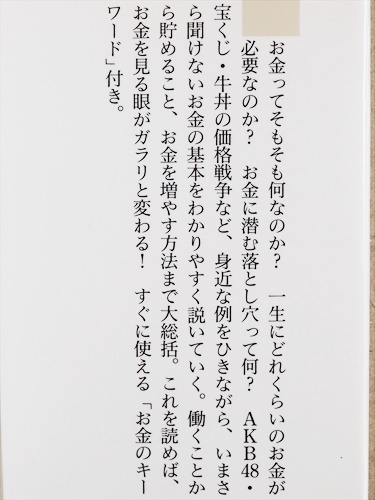 お金ってそもそも何なのか？　一生にどれくらいのお金が
必要なのか？　お金に潜む落とし穴って何？　ＡＫＢ48・
宝くじ・牛丼の価格戦争など、身近な例をひきながら、いまさ
ら聞けないお金の基本をわかりやすく説いていく。働くことか
ら貯めること、お金を増やす方法まで大総括。これを読めば、
お金を見る眼がガラリと変わる！　すぐに使える「お金のキー
ワード」付き。